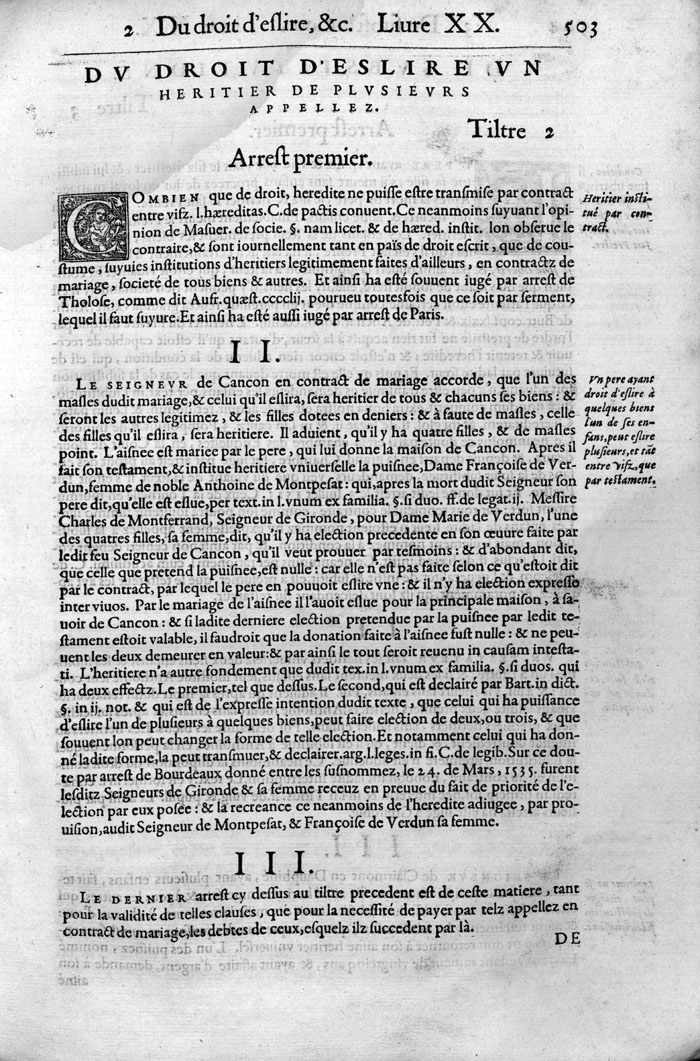 2 Du droit d'eslire, &c. Liure XX. 503
DV DROIT D'ESLIRE VN
HERITIER DE PLVSIEVRS
APPELLEZ.
Tiltre 2
Arrest premier.
COMBIEN que de droit, heredite ne puisse estre transmise par contract
entre vifz. l. hæreditas. C. de pactis conuent. Ce neanmoins suyuant l'opi-
nion de Masuer. de socie. §. nam licet. & de hæred. instit. lon obserue le
contraire, & sont iournellement tant en païs de droit escrit, que de cou-
stume, suyuies institutions d'heritiers legitimement faites d'ailleurs, en contractz de
mariage, societé de tous biens & autres. Et ainsi ha esté souuent iugé par arrest de
Tholose, comme dit Aufr. quæst. ccccliij. pourueu toutesfois que ce soit par serment,
lequel il faut suyure. Et ainsi ha esté aussi iugé par arrest de Paris.
Heritier insti-
tué par con-
tract.
II.
LE SEIGNEVR de Cancon en contract de mariage accorde, que l'un des
masles dudit mariage, & celui qu'il eslira, sera heritier de tous & chacuns ses biens: &
seront les autres legitimez, & les filles dotees en deniers: & à faute de masles, celle
des filles qu'il eslira, sera heritiere. Il aduient, qu'il y ha quatre filles, & de masles
point. L'aisnee est mariee par le pere, qui lui donne la maison de Cancon. Apres il
fait son testament, & institue heritiere vniuerselle la puisnee, Dame Françoise de Ver-
dun, femme de noble Anthoine de Montpesat: qui, apres la mort dudit Seigneur son
pere dit, qu'elle est eslue, per text. in l. vnum ex familia. §. si duo. ff. de legat. ij. Messire
Charles de Montferrand, Seigneur de Gironde, pour Dame Marie de Verdun, l'une
des quatre filles, sa femme, dit, qu'il y ha election precedente en son œuure faite par
ledit feu Seigneur de Cancon, qu'il veut prouuer par tesmoins: & d'abondant dit,
que celle que pretend la puisnee, est nulle: car elle n'est pas faite selon ce qu'estoit dit
par le contract, par lequel le pere en pouuoit eslire vne: & il n'y ha election expresse
inter viuos. Par le mariage de l'aisnee il l'auoit eslue pour la principale maison, à sa-
uoir de Cancon: & si ladite derniere election pretendue par la puisnee par ledit te-
stament estoit valable, il faudroit que la donation faite à l'aisnee fust nulle: & ne peu-
uent les deux demeurer en valeur: & par ainsi le tout seroit reuenu in causam intesta-
ti. L'heritiere n'a autre fondement que dudit tex. in l. vnum ex familia. §. si duos. qui
ha deux effectz. Le premier, tel que dessus. Le second, qui est declairé par Bart. in dict.
§. in ij. not. & qui est de l'expresse intention dudit texte, que celui qui ha puissance
d'eslire l'un de plusieurs à quelques biens, peut faire election de deux, ou trois, & que
souuent lon peut changer la forme de telle election. Et notamment celui qui ha don-
né ladite forme, la peut transmuer, & declairer. arg. l. leges. in fi. C. de legib. Sur ce dou-
te par arrest de Bourdeaux donné entre les susnommez, le 24. de Mars, 1535. furent
lesditz Seigneurs de Gironde & sa femme receuz en preuue du fait de priorité de l'e-
lection par eux posee: & la recreance ce neanmoins de l'heredite adiugee, par pro-
uision, audit Seigneur de Montpesat, & Françoise de Verdun sa femme.
Vn pere ayant
droit d'eslire à
quelques biens
l'un de ses en-
fans, peut eslire
plusieurs, et tāt
entre vifz, que
par testament.
III.
LE DERNIER arrest cy dessus au tiltre precedent est de ceste matiere, tant
pour la validité de telles clauses, que pour la necessité de payer par telz appellez en
contract de mariage, les debtes de ceux, esquelz ilz succedent par là.
DE